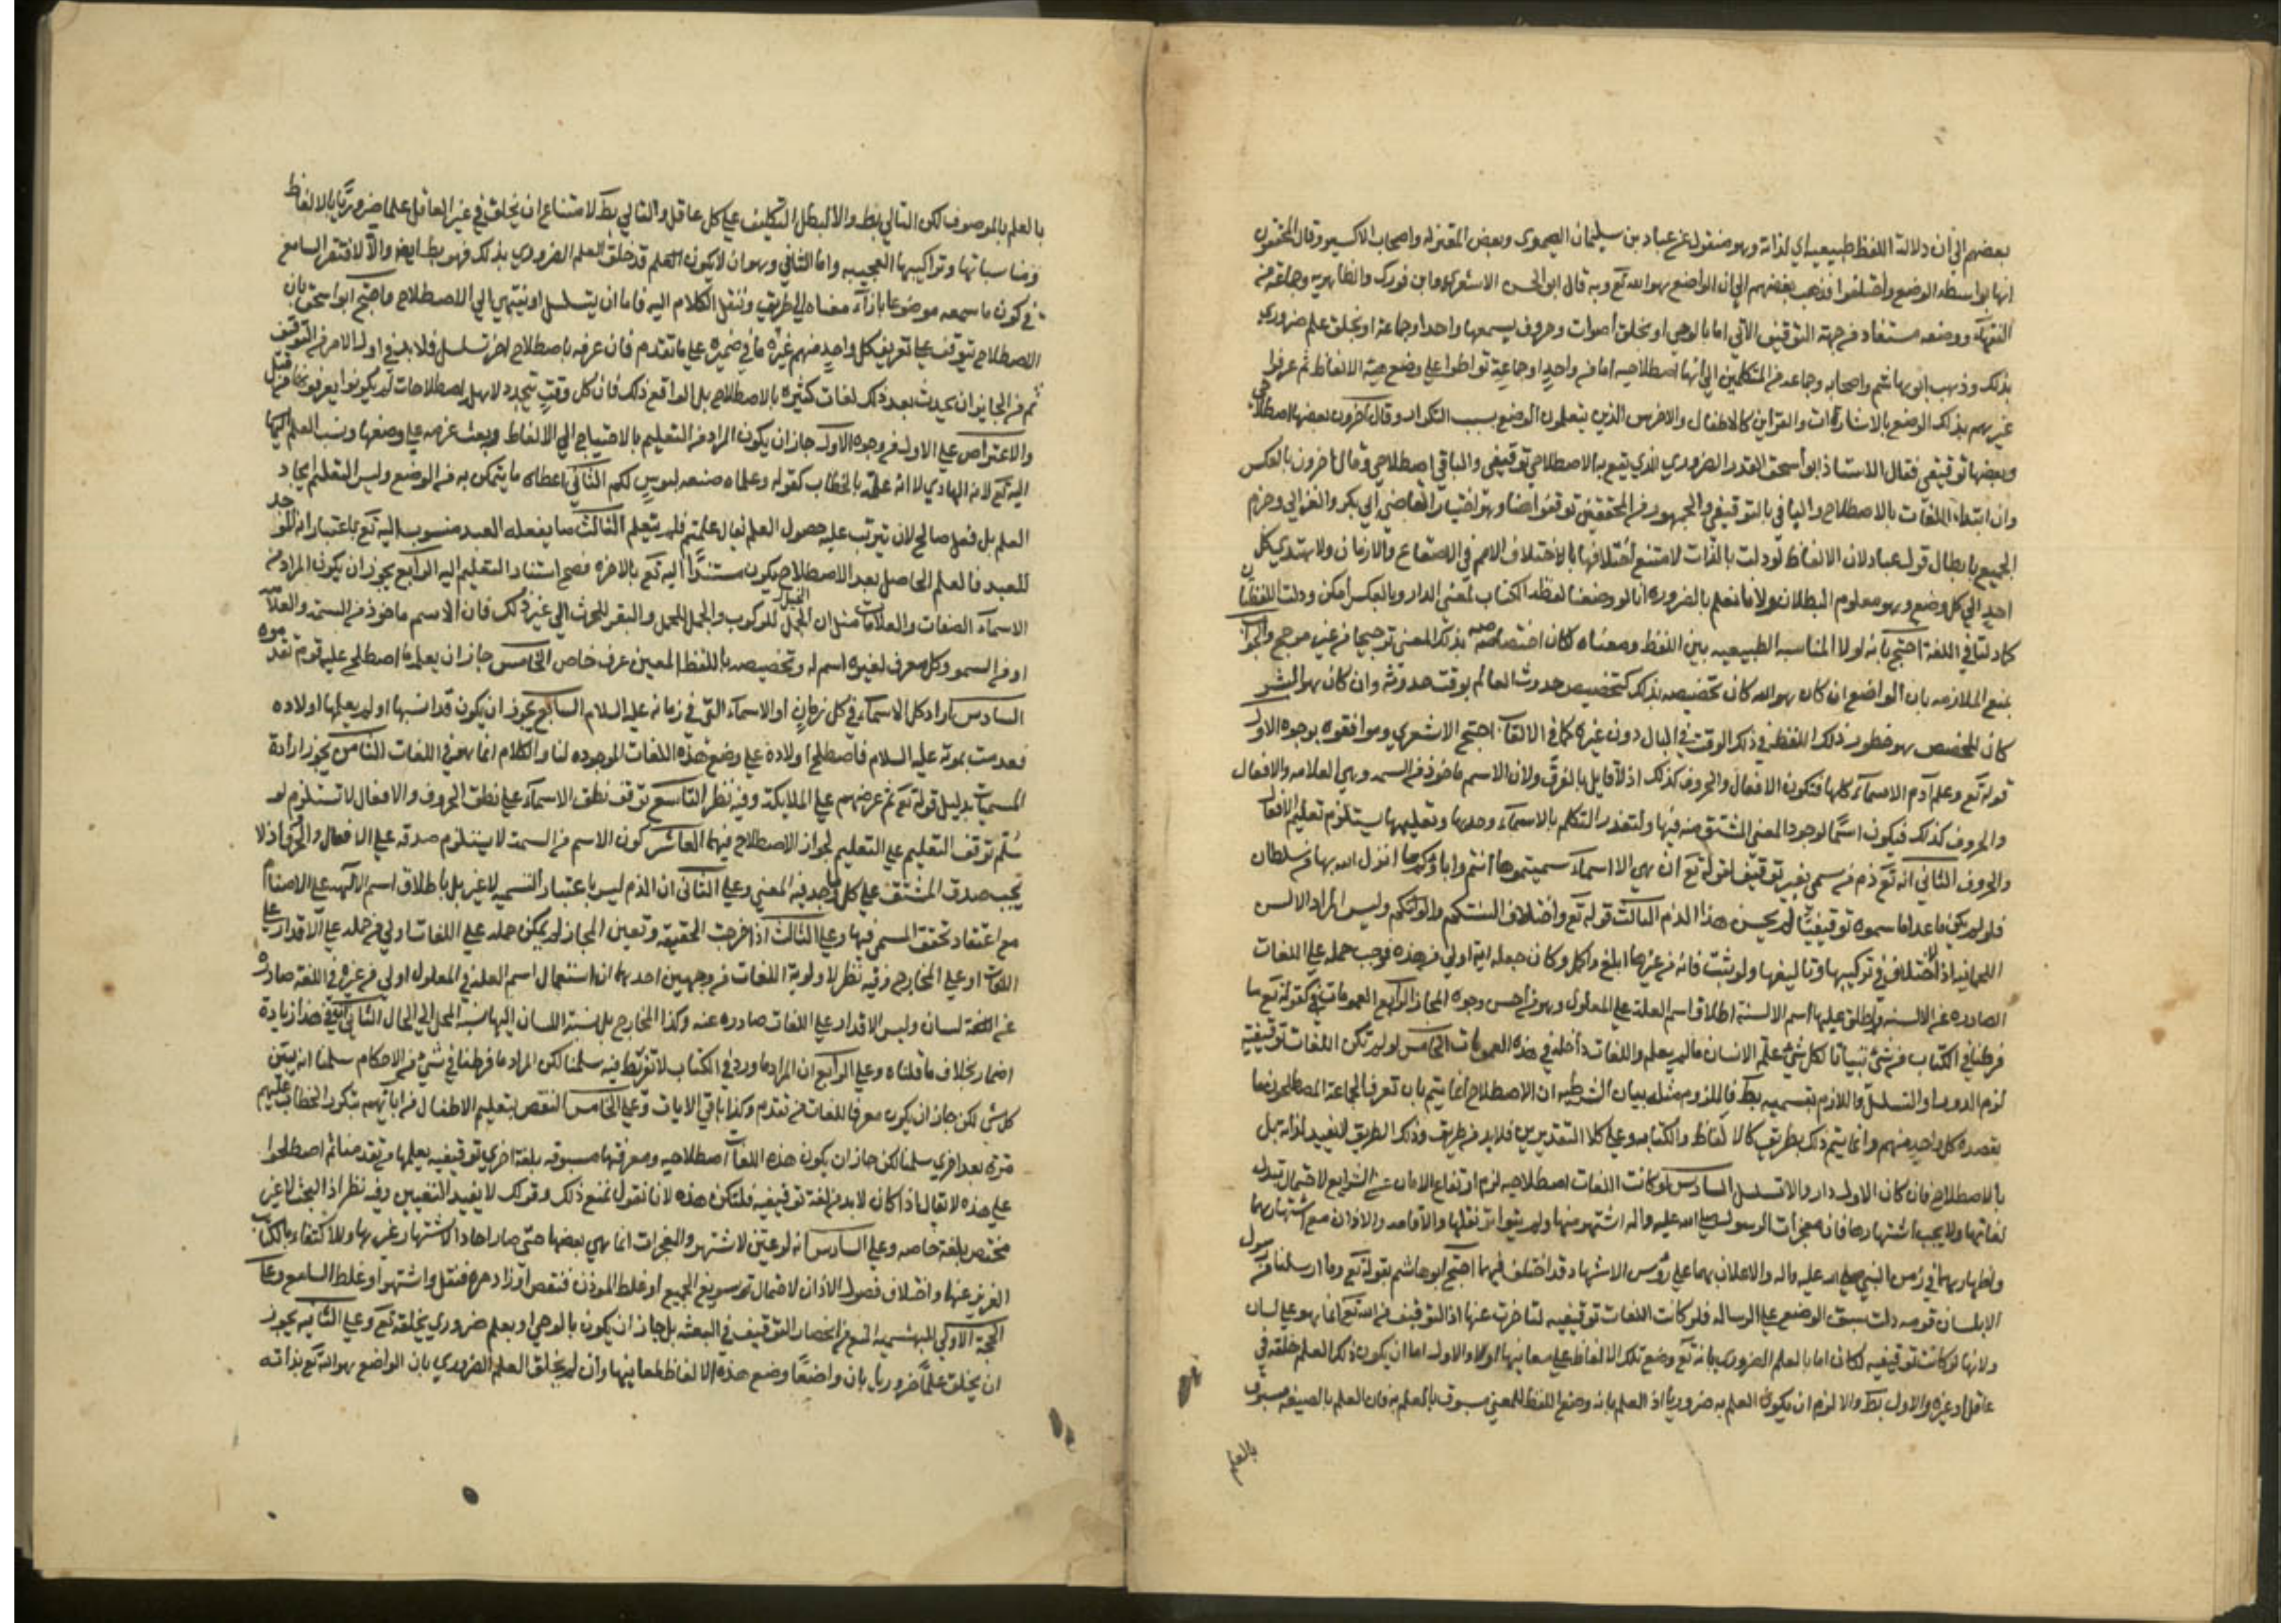 بعضهم الي ان دلالة اللفظ طبيعية اي لذاته وهو منقول عن عباد بن سليمان الصيمري وبعض المعتزله واصحاب الاكسير وقال المحققون
انها بواسطه الوضع واختلفوا فذهب بعضهم الي ان الواضع هو الله تع وبه قال ابو الحسن الاشعري وابن فورك والظاهريه وجماعة من
الفقهاء ووضعه مستفاد من جهة التوقيف الالهي اما بالوحي او بخلق اصوات وحروف يسمعها واحد او جماعة او بخلق علم ضروري
بذلك وذهب ابو هاشم واصحابه وجماعه من المتكلمين الي انها اصطلاحيه اما من واحدٍ او جماعة تواطوا علي وضع هذه الالفاظ ثم عرفوا
غيرهم بذلك الوضع بالاشارات والقراين كالاطفال والاخرس الذين يتعلمون الوضع بسبب التكرار وقال آخرون بعضها اصطلاحي
وبعضها توقيفي فقال الاستاذ ابو اسحق القدر الضروري الذي يقع به الاصطلاح توقيفي والباقي اصطلاحي وقال آخرون بالعكس
وان ابتداء اللغات بالاصطلاح والباقي بالتوقيف والجمهور من المحققين توقفوا هنا وهو اختيار القاضي ابي بكر والغزالي وجزم
الجميع بابطال قول عباد لان الالفاظ لو دلت بالذات لامتنع اختلافها بالاختلاف الامم في الاصقاع والازمان ولاهتدي كل
احدٍ الي كل وضع وهو معلوم البطلان ولانا نعلم بالضروره انا لو وضعنا لفظه الكتاب لمعنى الدار وبالعكس امكن ودلت اللفظتان
كما دلتا في اللغة احتج بانه لولا المناسبه الطبيعيه بين اللفظ ومعناه لكان اختصاصه بذلك المعنى ترجيحا من غير مرجح والجواب
بمنع الملازمه بان الواضع ان كان هو الله كان تخصيصه بذلك كتخصيص حدوث العالم بوقت حدوثه وان كان هو البشر
كان المخصص هو خطور ذلك اللفظ في ذلك الوقت في البال دون غيره كما في الالقاب احتج الاشعري وموافقوه بوجوه الاول
قوله تع وعلم آدم الاسماء كلها فتكون الافعال والحروف كذلك اذ لا قايل بالفرق ولان الاسم ماخوذ من السمه وهي العلامه والافعال
والحروف كذلك فيكون اسمًا لوجود المعني المشتق منه فيها ولتعذر التكلم بالاسماء وحدها وتعليمها يستلزم تعليم الافعال
والحروف الثاني انه تع ذم من سمي بغير توقيف لقوله تع ان هي الا اسماء سميتموها انتم واباؤكم ما انزل الله بها من سلطان
فلو لم يكن ماعدا ما سموه توقيفيًّا لم يحسن هذا الذم الثالث قوله تع واختلاف السنتكم والوانكم وليس المراد الالسن
اللحمانيه اذ لا اختلاف في تركيبها وتاليفها ولو ثبت فانه في غيرها ابلغ واكمل وكان جعله اية اولي من هذه فوجب حمله علي اللغات
الصادره عن الالسنه واطلق عليها اسم الالسنة اطلاق اسم العلة علي المعلول وهو من احسن وجوه المجاز الرابع العمومات كقوله تع ما
فرطنا في الكتاب من شيء تبيانا لكل شيء علم الانسان ما لم يعلم واللغات داخلة في هذه العمومات الخامس لو لم تكن اللغات توقيفية
لزم الدور او التسلسل واللازم بقسميه بط فالملزوم مثله بيان الشرطيه ان الاصطلاح انما يتم بان تعرف الجماعة المصطلحون ما
يقصده كل واحد منهم وانما يتم ذلك بطريق كالالفاظ والكتابه وعلي كلا التقديرين فلابد من طريق وذلك الطريق لا يفيد لذاته بل
بالاصطلاح فان كان الاول دار والا تسلسل السادس لو كانت اللغات اصطلاحيه لزم ارتفاع الامان عن الشرايع لاحتمال تبدل
لغاتها ولا يجب اشتهارها فان معجزات الرسول صلي الله عليه واله اشتهر منها ولم يتواتر نقلها والاقامه والاذان مع اشتهارهما
واظهارهما في زمن النبي صلي الله عليه واله والاعلان بهما علي رؤس الاشهاد قد اختلف فيهما احتج ابو هاشم بقوله تع وما ارسلنا من رسول
الا بلسان قومه دلت سبق الوضع علي الرساله فلو كانت اللغات توقيفيه لتاخرت عنها اذ التوقيف من الله تع انما هو علي لسان
ولانها لو كانت توقيفيه لكان اما بالعلم الضروري بانه تع وضع تلك الالفاظ علي معانيها اولا والاول اما ان يكون ذلك العلم خلقه في
عاقل او غيره والاول بط والا لزم ان يكون العلم به ضروريا اذ العلم بانه وضع اللفظ للمعني مسبوق بالعلم به فان العلم بالصيغه مسبوق
بالعلم
بالعلم بالموصوف لكن التالي بط والا لبطل التكليف علي كل عاقل والتالي بط لامتناع ان يخلق في غير العاقل علما ضروريًّا بالالفاظ
ومناسباتها وتراكيبها العجيبه واما الثاني وهو ان لا يكون العلم قد خلق العلم الضروري بذلك فهو بط ايض والا لافتقر السامع
في كون ما سمعه موضوعا بازاء معناه الي طريق وننقل الكلام اليه فاما ان يتسلسل او ينتهي الي الاصطلاح واحتج ابو اسحق بان
الاصطلاح يتوقف علي تعريف كل واحدٍ منهم غيره ما في ضميره علي ما تقدم فان عرفه باصطلاح اخر تسلسل فلابد في اول الامر من التوقيف
ثم من الجايز ان يحدث بعد ذلك لغات كثيره بالاصطلاح بل الواقع ذلك فان كل وقتٍ يتجدد لاهله اصطلاحات لم يكونوا يعرفونها من قبل
والاعتراض علي الاول من وجوه الاول جاز ان يكون المراد من التعليم بالاحتياج الي الالفاظ وبعث عزمه علي وضعها ونسب العلم اليها
اليه تع لانه الهادي لا انه علمه بالخطاب كقوله وعلمناه صنعه لبوسٍ لكم الثاني اعطاه ما يتمكن به من الوضع وليس التعليم ايجاد
العلم بل فعل صالح لان يترتب عليه حصول العلم يقال علمته فلم يتعلم الثالث ما يفعله العبد منسوب اليه تع باعتبار انه الموجد
للعبد فالعلم الحاصل بعد الاصطلاح يكون مستندًا اليه تع بالاخره فصح استناد التعليم اليه الرابع يجوز ان يكون المراد من
الاسماء الصفات والعلامات مثل ان الخيل للركوب والجمل للحمل والبقر للحرث الي غير ذلك فان الاسم ماخوذ من السمه والعلامه
او من السمو وكل معرف لغيره اسم له وتخصيصه باللفظ المعين عرف خاص الخامس جاز ان يعلمه ما اصطلح عليه قوم تقدموه
السادس اراد كل الاسماء في كل زمانٍ او الاسماء التي في زمانه عليه السلام السابع يجوز ان يكون قد انسيها او لم يعلمها اولاده
فعدمت بموته عليه السلام فاصطلح اولاده علي وضع هذه اللغات الموجوده لنا والكلام انما هو في اللغات الثامن يجوز ارادة
المسميات بدليل قوله تع ثم عرضهم علي الملايكه وفيه نظر التاسع توقف نطق الاسماء علي نطق الحروف والافعال لا تستلزم لو
سُلم توقف التعليم علي التعليم لجواز الاصطلاح فيهما العاشر كون الاسم من السمه لا يستلزم صدقه علي الافعال والحروف اذ لا
يجب صدق المشتق علي كل ما وجد فيه المعني وعلي الثاني ان الذم ليس باعتبار التسميه لا غير بل باطلاق اسم الآلهه علي الاصنام
مع اعتقاد تحقق المسمي فيها وعلي الثالث اذا خرجت الحقيقه وتعين المجاز لم يمكن حمله علي اللغات اولي من حمله علي الاقدار علي
اللغات او علي المخارج وفيه نظر لاولوية اللغات من وجهين احدهما ان استعمال اسم العله في المعلول اولي من غيره في اللغة صادره
عن اللسان وليس الاقدار علي اللغات صادره عنه وكذا المخارج بل نسبة اللسان اليها نسبة المحل الي الحال الثاني في هذا زيادة
اضمار بخلاف ما قلناه وعلي الرابع ان المراد ما ورد في الكتاب لا تفريط فيه سلمنا لكن المراد ما فرطنا في شيء من الاحكام سلمنا انه يبين
كل شي لكن جاز ان يكون معرفا للغات من تقدم وكذا باقي الايات وعلي الخامس النقض بتعليم الاطفال من ابايهم بتكرر الخطاب عليهم
مرة بعد اخري سلمنا لكن جاز ان يكون هذه اللغات اصطلاحيه ومعرفتها مسبوقه بلغة اخري توقيفيه يعلمها من تقدمنا ثم اصطلحوا
علي هذه لا يقال اذا كان لابد من لغة توقيفيه فلتكن هذه لانا نقول نمنع ذلك وقولك لا يفيد التعيين وفيه نظر اذ البحث لا غير
مختص بلغة خاصه وعلي السادس انه لو عين لاشتهر والمعجزات انما هي بعضها حتى صار احادا لاشتهار غيرها وللاكتفاء بالكتاب
العزيز عنها واختلاف فصول الاذان لاحتمال تسويغ الجميع او غلط المؤذن فنقص او زاد مره فنقل واشتهر او غلط السامع وعلي
الحجة الاولي للبهشميه المنع من انحصار التوقيف في البعثه بل جاز ان يكون بالوحي او بعلم ضروري يخلقه تع وعلي الثانيه يجوز
ان يخلق علمًا ضروريا بان واضعًا وضع هذه الالفاظ لمعانيها وان لم يخلق العلم الضروري بان الواضع هو الله تع بذاته